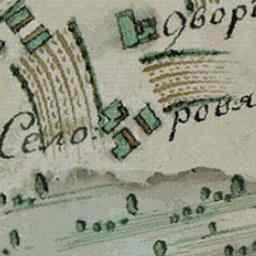 Двор
Село
ровя